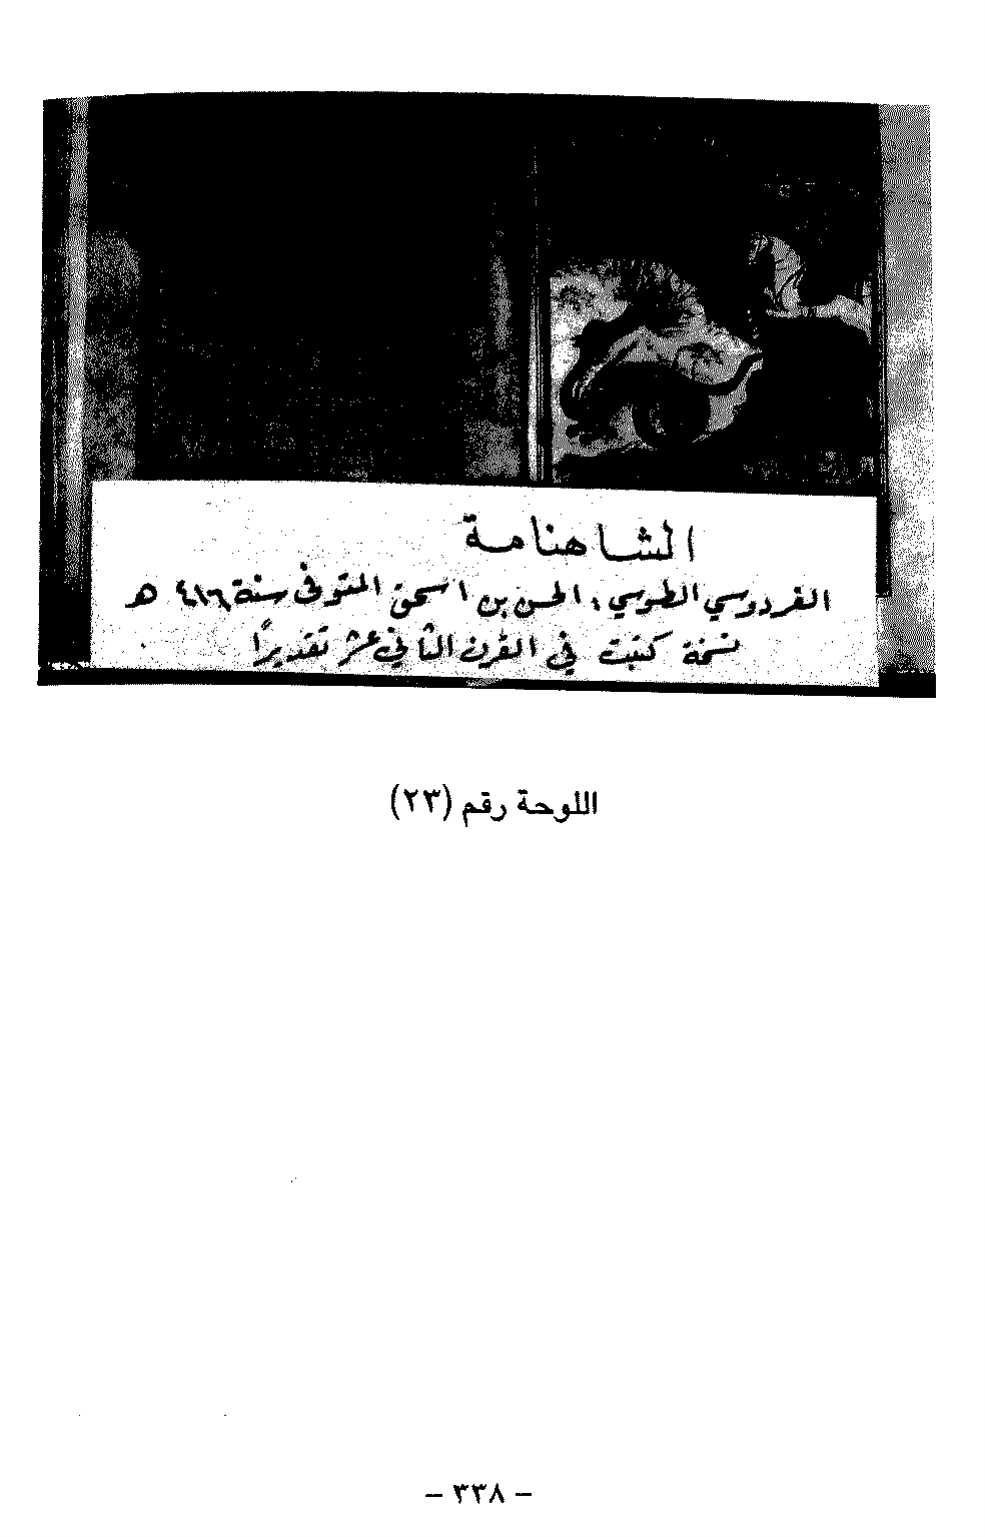 الشاهنامة
الفردوسي الطوسي ، الحسن بن اسحق المتوفى سنة ٤١٦ هـ
نسخة كتبت في القرن الثاني عشر تقديرًا
اللوحة رقم (٢٣)
- ٣٣٨ -